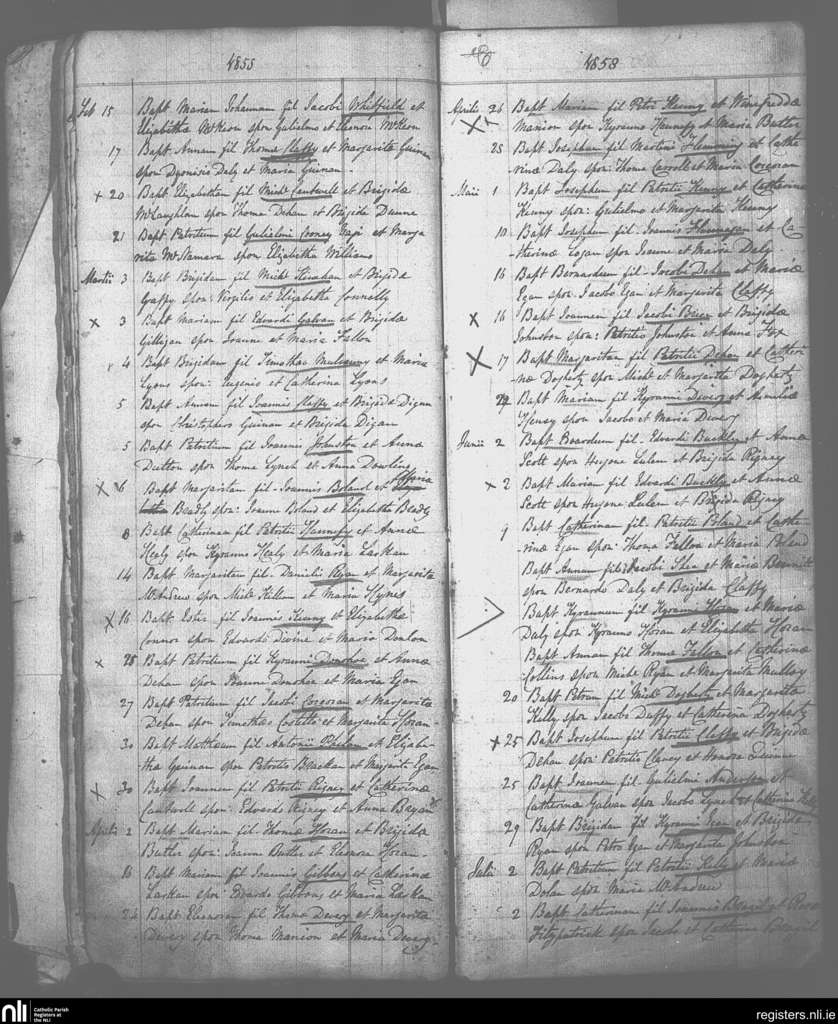 1855
Feb 15 Bapt Mariam Johannam fil Jacobi Whitfield et
Elizabetha McKeon spon Gulielmo et Elenora McKeon
17 Bapt Annam fil Thoma Claffy et Margarita Guinan
spon Dyonisio Daly et Maria Guinan
x 20 Bapt Elizabetham fil Mich Cantwell et Brigida
McLaughlan spon Thoma Dehan et Brigida Dunne
21 Bapt Patritium fil Gulielmi Cooney et Marga
rita McNamara spon Elizabetha Williams
Martii 3 Bapt Brigidam fil Mich et Brigida
Gaffy spon: Virgilio et Elizabetha Connelly
x 3 Bapt Mariam fil Edvardi Galvan et Brigida
Gilligan spon Joanne et Maria Fallon
4 Bapt Brigidam fil Timothaei et Maria
Lyons spon: Eugenio et Catherina Lyons
5 Bapt Annam fil Joannis Claffy et Brigida Digan
spon Christophero Guinan et Brigida Digan
5 Bapt Patritium fil Joannis Johnston et Anna
Dutton spon Thoma Lynch et Anna Dowling
x 6 Bapt Margaritam fil Joannis Boland et
Beady spon: Joanne Boland et Elizabetha Beady
8 Bapt Catherinam fil Patritii et Anna
Healy spon Kyranno Healy et Maria Larkan
14 Bapt Margaritam fil Danielis Ryan et Margarita
McAndrew spon Mich et Maria Hynes
x 16 Bapt Ester fil Joannis Kenny et Elizabetha
Connor spon Edvardo Divine et Maria Donlon
x 25 Bapt Patritium fil Kyranni Donohoe et Anna
Dehan spon Joanne Donohoe et Maria Egan
27 Bapt Patritium fil Jacobi Corcoran et Margarita
Dehan spon Timotheo Costello et Margarita Horan
30 Bapt Mattheum fil Antonii Phelan et Elizabe-
tha Guinan spon Patritio Bracken et Margarit Egan
x 30 Bapt Joannem fil Patritii Rigney et Catherina
Cantwell spon: Edvardo Rigney et Anna Bryan
Aprilis 2 Bapt Mariam fil Thoma Horan et Brigida
Butler spon: Joanne Butler et Elenora Horan
16 Bapt Mariam fil Joannis Gibbons et Catherina
Larkan spon: Edvardo Gibbons et Maria Larkan
24 Bapt Elenoram fil Thoma Devery et Margarita
Devery spon Thoma Manion et Maria Devery
1858
Aprilis 26 Bapt Mariam fil Petri Kenny et Winefredda
x Manion spon Kyranno et Maria Butler
25 Bapt Josephum fil Martini Flemming et Cathe
rina Daly spon: Thoma Carroll et Maria Corcoran
Maii 1 Bapt Josephum fil Patritii Kenny et Catherina
Kenny spon: Gulielmo et Margarita Kenny
10 Bapt Josephum fil Joannis Flannagan et Ca-
therina Logan spon Joanne et Maria Daly
16 Bapt Bernardum fil Jacobi Dehan et Maria
Egan spon Jacobo Egan et Margarita Claffy
x 16 Bapt Joannem fil Jacobi et Brigida
Johnston spon: Patritio Johnston et Anna Fox
x 17 Bapt Margaritam fil Patritii Dehan et Catheri
na Dogherty spon Mich et Margarita Dogherty
Bapt Mariam fil Kyranni Devery et
spon Jacobo et Maria Devery
Junii 2 Bapt fil Edvardi Buckley et Anna
Scott spon Eugene et Brigida Rigney
x 2 Bapt Mariam fil Edvardi Buckley et Anna
Scott spon Eugene et Brigida Rigney
9 Bapt Catherinam fil Patritii Boland et Cathe-
rina Egan spon: Thoma Fallon et Maria Boland
Bapt Annam fil Jacobi Shea et Maria
spon Bernardo Daly et Brigida Claffy
Bapt Kyrannum fil Kyranni Horan et Maria
Daly spon Kyranno Horan et Elizabetha Horan
Bapt Annam fil Thoma Fallon et Catherina
Collins spon Mich Ryan et Margarita
20 Bapt Petrum fil Mich Dogherty et Margarita
Kelly spon Jacobo Duffy et Catherina Dogherty
x 25 Bapt Josephum fil Patritii Claffy et Brigida
Dehan spon Patritio Clavey et Honora
25 Bapt Joannem fil Gulielmi Anderson et
Catherina Galvan spon Jacobo Lynch et Catherina
29 Bapt Brigidam fil Kyranni Egan et Brigida
Ryan spon Petro Egan et Margarita Johnston
Julii 2 Bapt Patritium fil Patritii et Maria
Dolan spon Maria McAndrew
2 Bapt Catherinam fil Joannis et
Fitzpatrick spon Jacobo et Catherina
nli
Catholic Parish
Registers at
the NLI
registers.nli.ie